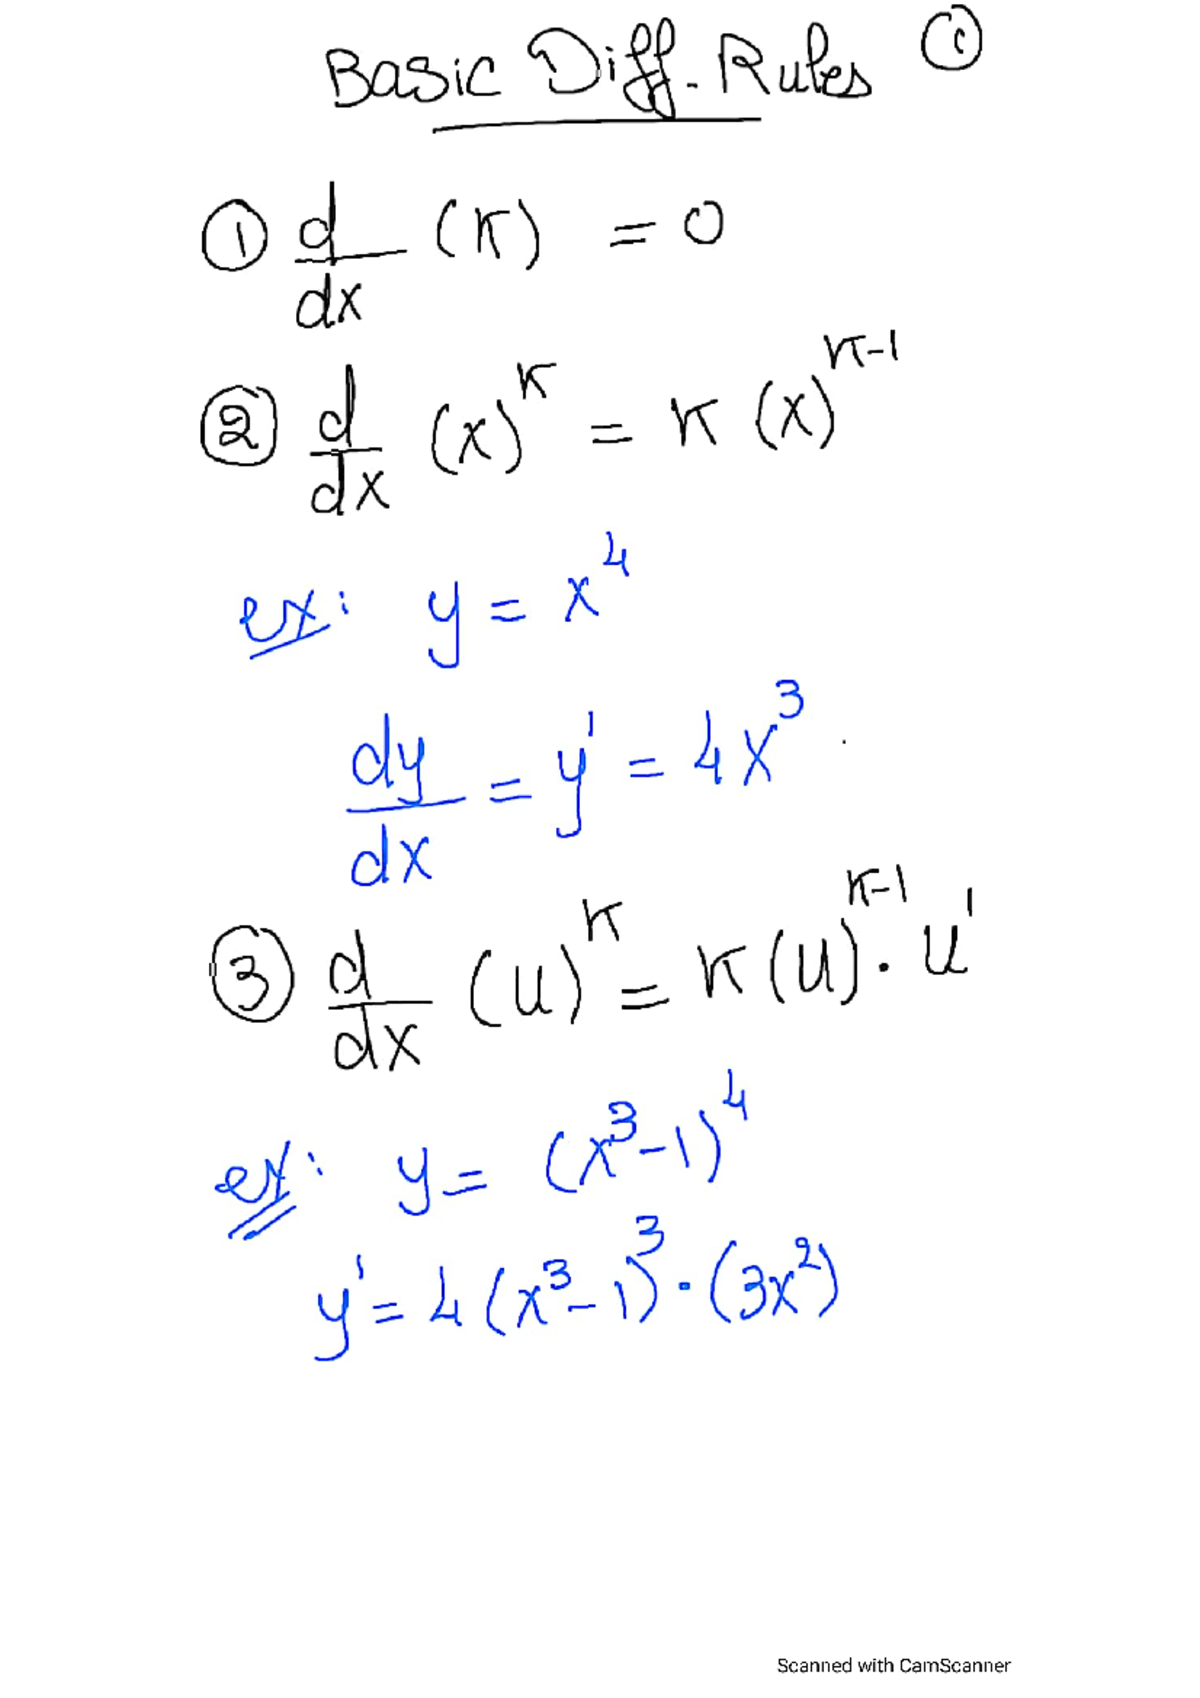 Basic Diff. Rules ①
① d/dx (K) = 0
② d/dx (x)^K = K (x)^(K-1)
ex: y = x^4
dy/dx = y' = 4x^3
③ d/dx (u)^K = K(u)^(K-1) · u'
ex: y = (x^3-1)^4
y' = 4(x^3-1)^3 · (3x^2)
Scanned with CamScanner